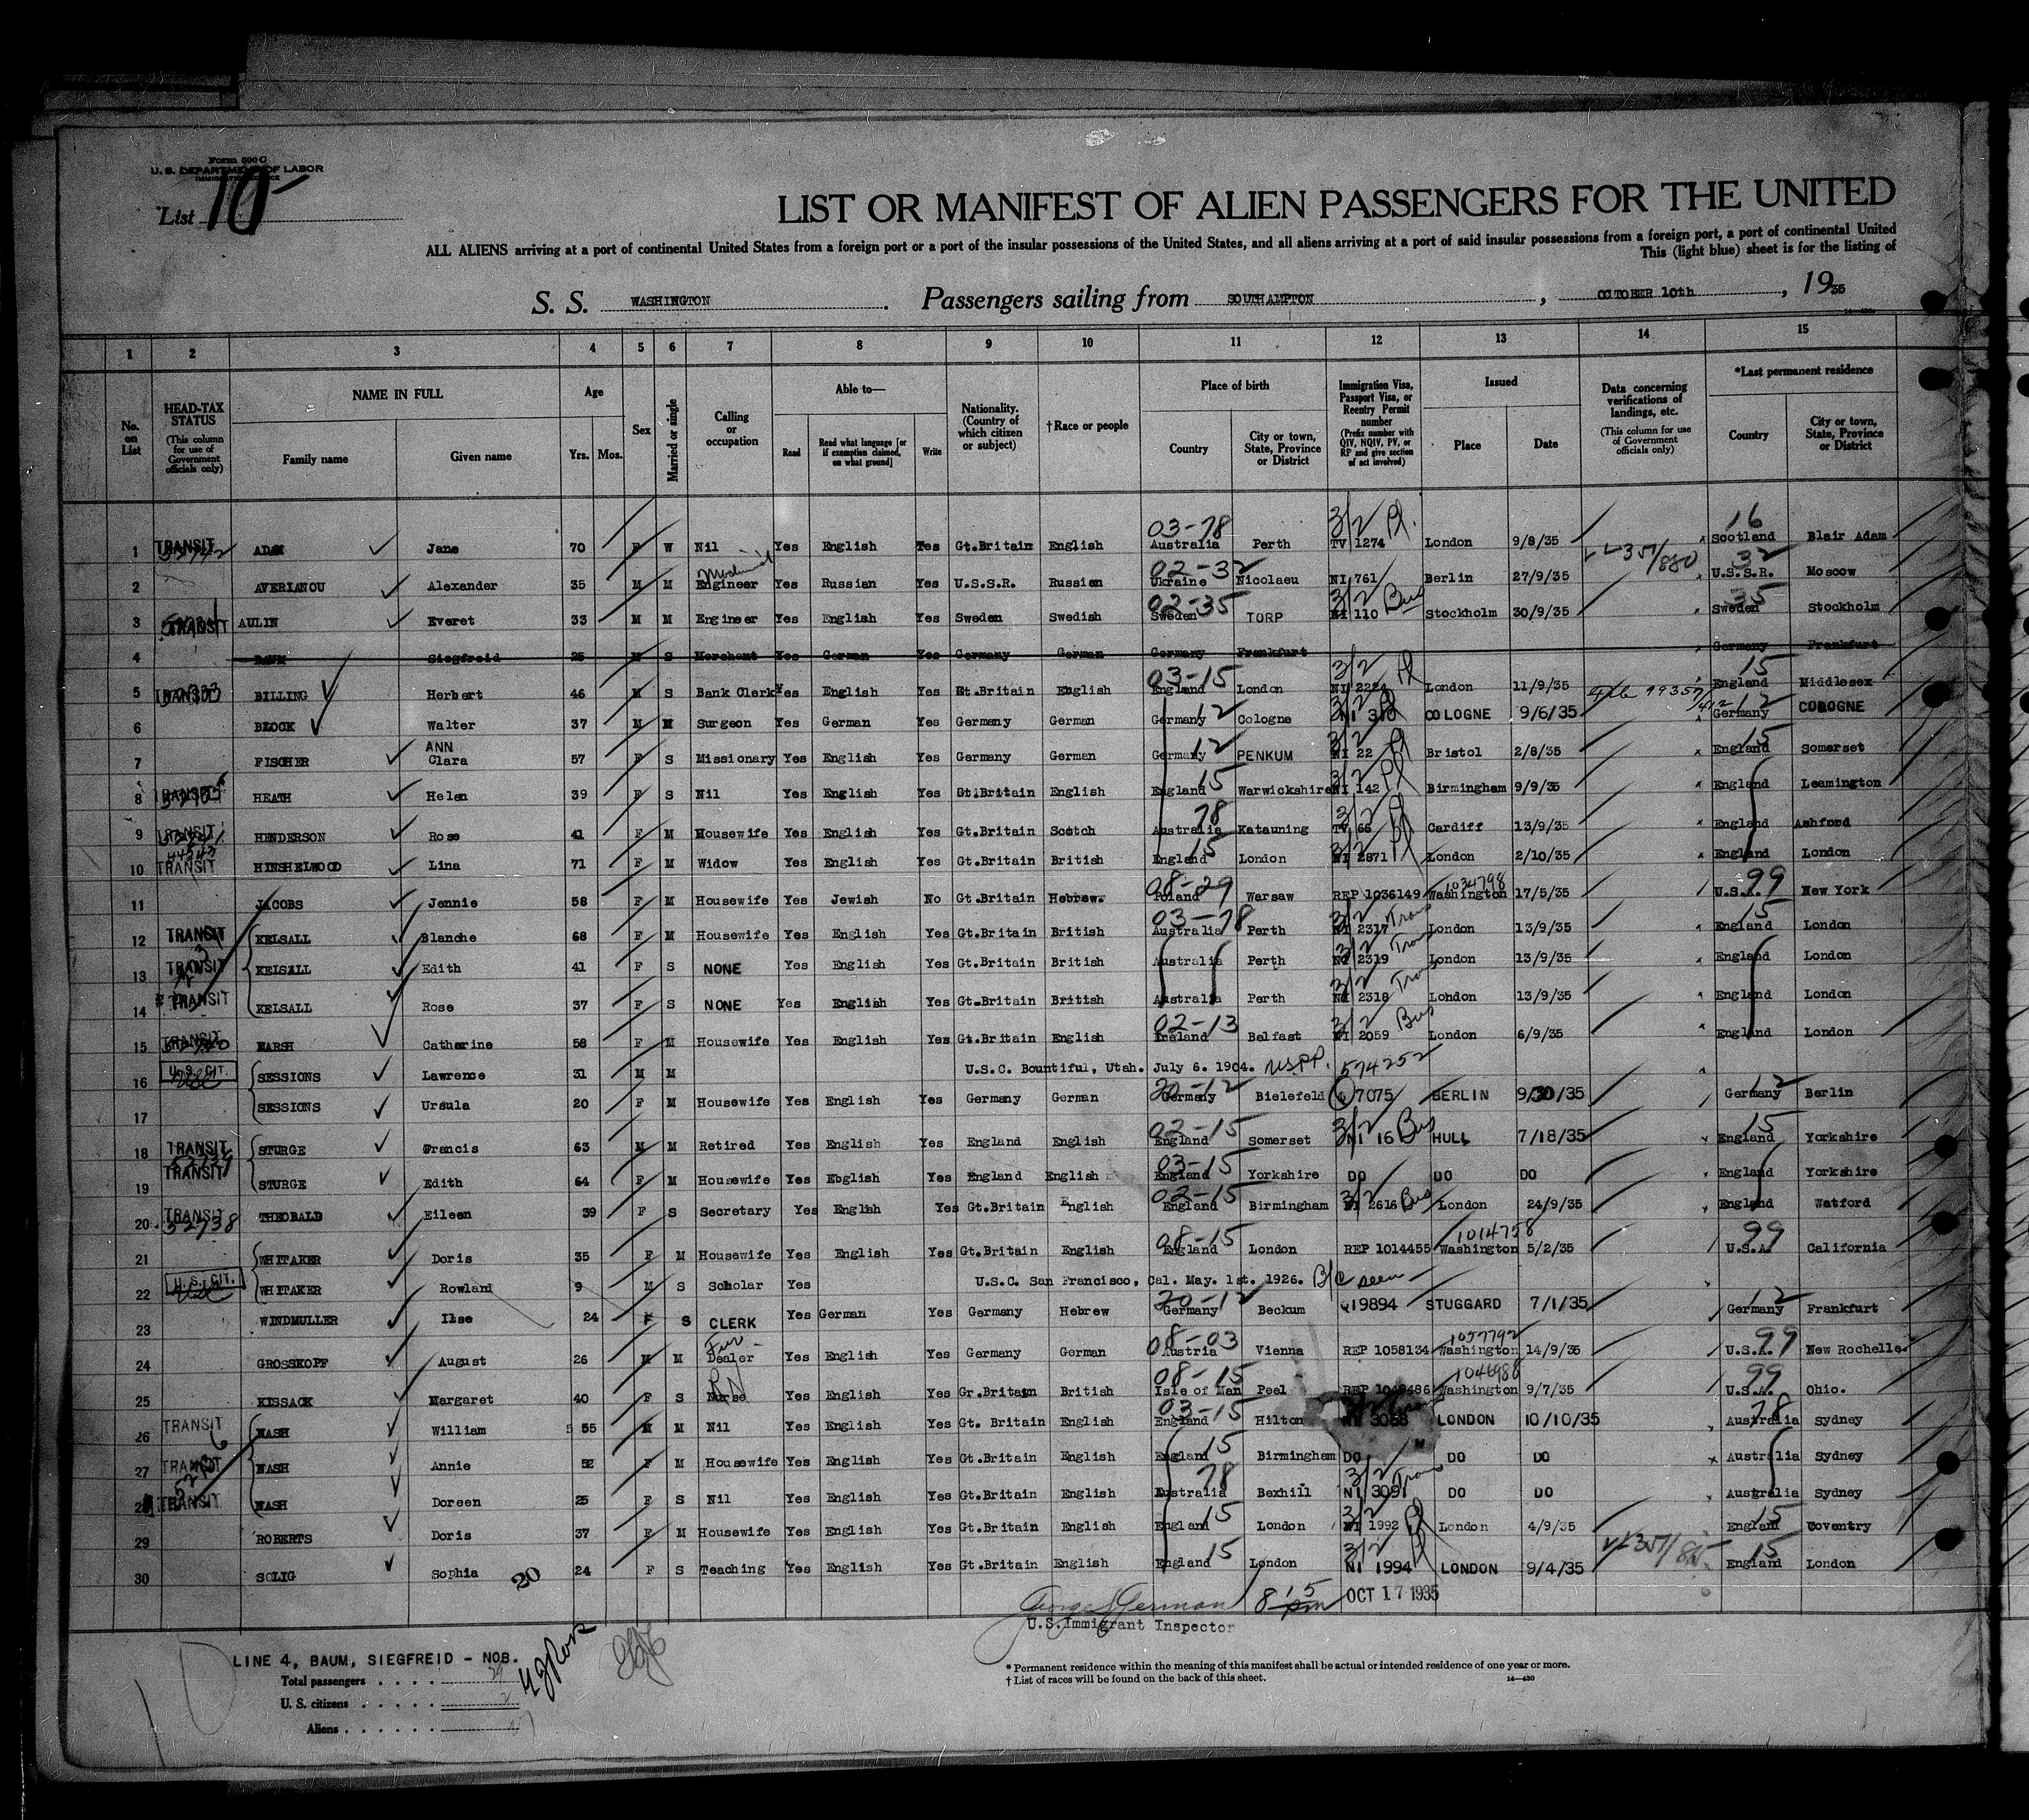 Form 500 C
U. S. DEPARTMENT OF LABOR
List 10
LIST OR MANIFEST OF ALIEN PASSENGERS FOR THE UNITED
ALL ALIENS arriving at a port of continental United States from a foreign port or a port of the insular possessions of the United States, and all aliens arriving at a port of said insular possessions from a foreign port, a port of continental United
This (light blue) sheet is for the listing of
S. S. WASHINGTON. Passengers sailing from SOUTHAMPTON, OCTOBER 10th, 1935
1 2 3 4 5 6 7 8 9 10 11 12 13 14 15
No. on List
HEAD-TAX STATUS (This column for use of Government officials only)
NAME IN FULL Family name Given name
Age Yrs. Mos.
Sex
Married or single
Calling or occupation
Able to— Read Read what language [or if exemption claimed, on what ground] Write
Nationality. (Country of which citizen or subject)
†Race or people
Place of birth Country City or town, State, Province or District
Immigration Visa, Passport Visa, or Reentry Permit number (Prefix number with QIV, NQIV, PV, or RP and give section of act involved)
Issued Place Date
Data concerning verifications of landings, etc. (This column for use of Government officials only)
*Last permanent residence Country City or town, State, Province or District
1 TRANSIT ADAM Jane 70 F W Nil Yes English Yes Gt.Britain English 03-78 Australia Perth 3/2 Pl. TV 1274 London 9/8/35 16 Scotland Blair Adam
2 AVERIANOU Alexander 35 M M Engineer Yes Russian Yes U.S.S.R. Russian 02-32 Ukraine Nicolaeu NI 761 Berlin 27/9/35 32 U.S.S.R. Moscow
3 TRANSIT AULIN Everet 33 M M Engineer Yes English Yes Sweden Swedish 02-35 Sweden TORP 3/2 Bus NI 110 Stockholm 30/9/35 35 Sweden Stockholm
4 BAUM Siegfreid 25 M S Merchant Yes German Yes Germany German Germany Frankfurt Germany Frankfurt
5 TRANSIT BILLING Herbert 46 M S Bank Clerk Yes English Yes Gt.Britain English 03-15 England London 3/2 Pl NI 2224 London 11/9/35 15 England Middlesex
6 BLOCK Walter 37 M M Surgeon Yes German Yes Germany German Germany 12 Cologne 3/2 NI 310 COLOGNE 9/6/35 Germany 12 COLOGNE
7 FISCHER ANN Clara 57 F S Missionary Yes English Yes Germany German Germany 12 PENKUM 3/2 Pl NI 22 Bristol 2/8/35 15 England Somerset
8 TRANSIT HEATH Helen 39 F S Nil Yes English Yes Gt.Britain English 15 England Warwickshire 3/2 Pl NI 142 Birmingham 9/9/35 England Leamington
9 TRANSIT HENDERSON Rose 41 F M Housewife Yes English Yes Gt.Britain Scotch 78 Australia Katauning 3/2 Pl TV 66 Cardiff 13/9/35 England Ashford
10 TRANSIT HINSHELWOOD Lina 71 F M Widow Yes English Yes Gt.Britain British 15 England London 3/2 Pl NI 2871 London 2/10/35 England London
11 JACOBS Jennie 58 F M Housewife Yes Jewish No Gt.Britain Hebrew. 08-29 Poland Warsaw REP 1036149 1034798 Washington 17/5/35 99 U.S.A. New York
12 TRANSIT KELSALL Blanche 68 F M Housewife Yes English Yes Gt.Britain British 03-78 Australia Perth 3/2 Tran NI 2317 London 13/9/35 15 England London
13 TRANSIT KELSALL Edith 41 F S NONE Yes English Yes Gt.Britain British Australia Perth 3/2 Tran NI 2319 London 13/9/35 England London
14 TRANSIT KELSALL Rose 37 F S NONE Yes English Yes Gt.Britain British Australia Perth 3/2 Tran NI 2318 London 13/9/35 England London
15 TRANSIT MARSH Catherine 58 F M Housewife Yes English Yes Gt.Britain English 02-13 Ireland Belfast 3/2 Bus NI 2059 London 6/9/35 England London
16 U.S. CIT. SESSIONS Lawrence 31 M M U.S.C. Bountiful, Utah. July 6. 1904. USPP. 574252
17 SESSIONS Ursula 20 F M Housewife Yes English Yes Germany German 20-12 Germany Bielefeld Q 7075 BERLIN 9/30/35 12 Germany Berlin
18 TRANSIT STURGE Francis 63 M M Retired Yes English Yes England English 02-15 England Somerset 3/2 Bus NI 16 HULL 7/18/35 15 England Yorkshire
19 TRANSIT STURGE Edith 64 F M Housewife Yes Ebglish Yes England English 03-15 England Yorkshire DO DO DO England Yorkshire
20 TRANSIT 52738 THEOBALD Eileen 39 F S Secretary Yes English Yes Gt.Britain English 02-15 England Birmingham 3/2 Bus NI 2616 London 24/9/35 England Watford
21 WHITAKER Doris 35 F M Housewife Yes English Yes Gt.Britain English 08-15 England London REP 1014455 1014758 Washington 5/2/35 99 U.S.A. California
22 U.S. CIT. WHITAKER Rowland 9 M S Scholar Yes U.S.C. San Francisco, Cal. May. 1st. 1926. B/C seen
23 WINDMULLER Ilse 24 F S CLERK Yes German Yes Germany Hebrew 20-12 Germany Beckum Q19894 STUGGARD 7/1/35 12 Germany Frankfurt
24 GROSSKOPF August 26 M M Fur Dealer Yes English Yes Germany German 08-03 Austria Vienna REP 1058134 1057792 Washington 14/9/35 99 U.S.A. New Rochelle.
25 KISSACK Margaret 40 F S RN Nurse Yes English Yes Gr.Britain British 08-15 Isle of Man Peel REP 1048486 1046988 Washington 9/7/35 99 U.S.A. Ohio.
26 TRANSIT NASH William 55 M M Nil Yes English Yes Gt. Britain English 03-15 England Hilton LONDON 10/10/35 78 Australia Sydney
27 TRANSIT NASH Annie 52 F M Housewife Yes English Yes Gt.Britain English 15 England Birmingham DO DO DO Australia Sydney
28 TRANSIT NASH Doreen 25 F S Nil Yes English Yes Gt.Britain English 78 Australia Bexhill 3/2 Tran NI 3091 DO DO Australia Sydney
29 ROBERTS Doris 37 F M Housewife Yes English Yes Gt.Britain English 15 England London 3/2 Pl NI 1992 London 4/9/35 15 England Coventry
30 SOLIG Sophia 20 24 F S Teaching Yes English Yes Gt.Britain English 15 England London 3/2 Pl NI 1994 LONDON 9/4/35 15 England London
8 15 pm OCT 17 1935
U.S.Immigrant Inspector
LINE 4, BAUM, SIEGFREID - NOB.
Total passengers . . . . 29
U. S. citizens . . . . . 2
Aliens . . . . . .
* Permanent residence within the meaning of this manifest shall be actual or intended residence of one year or more.
† List of races will be found on the back of this sheet.
14—430